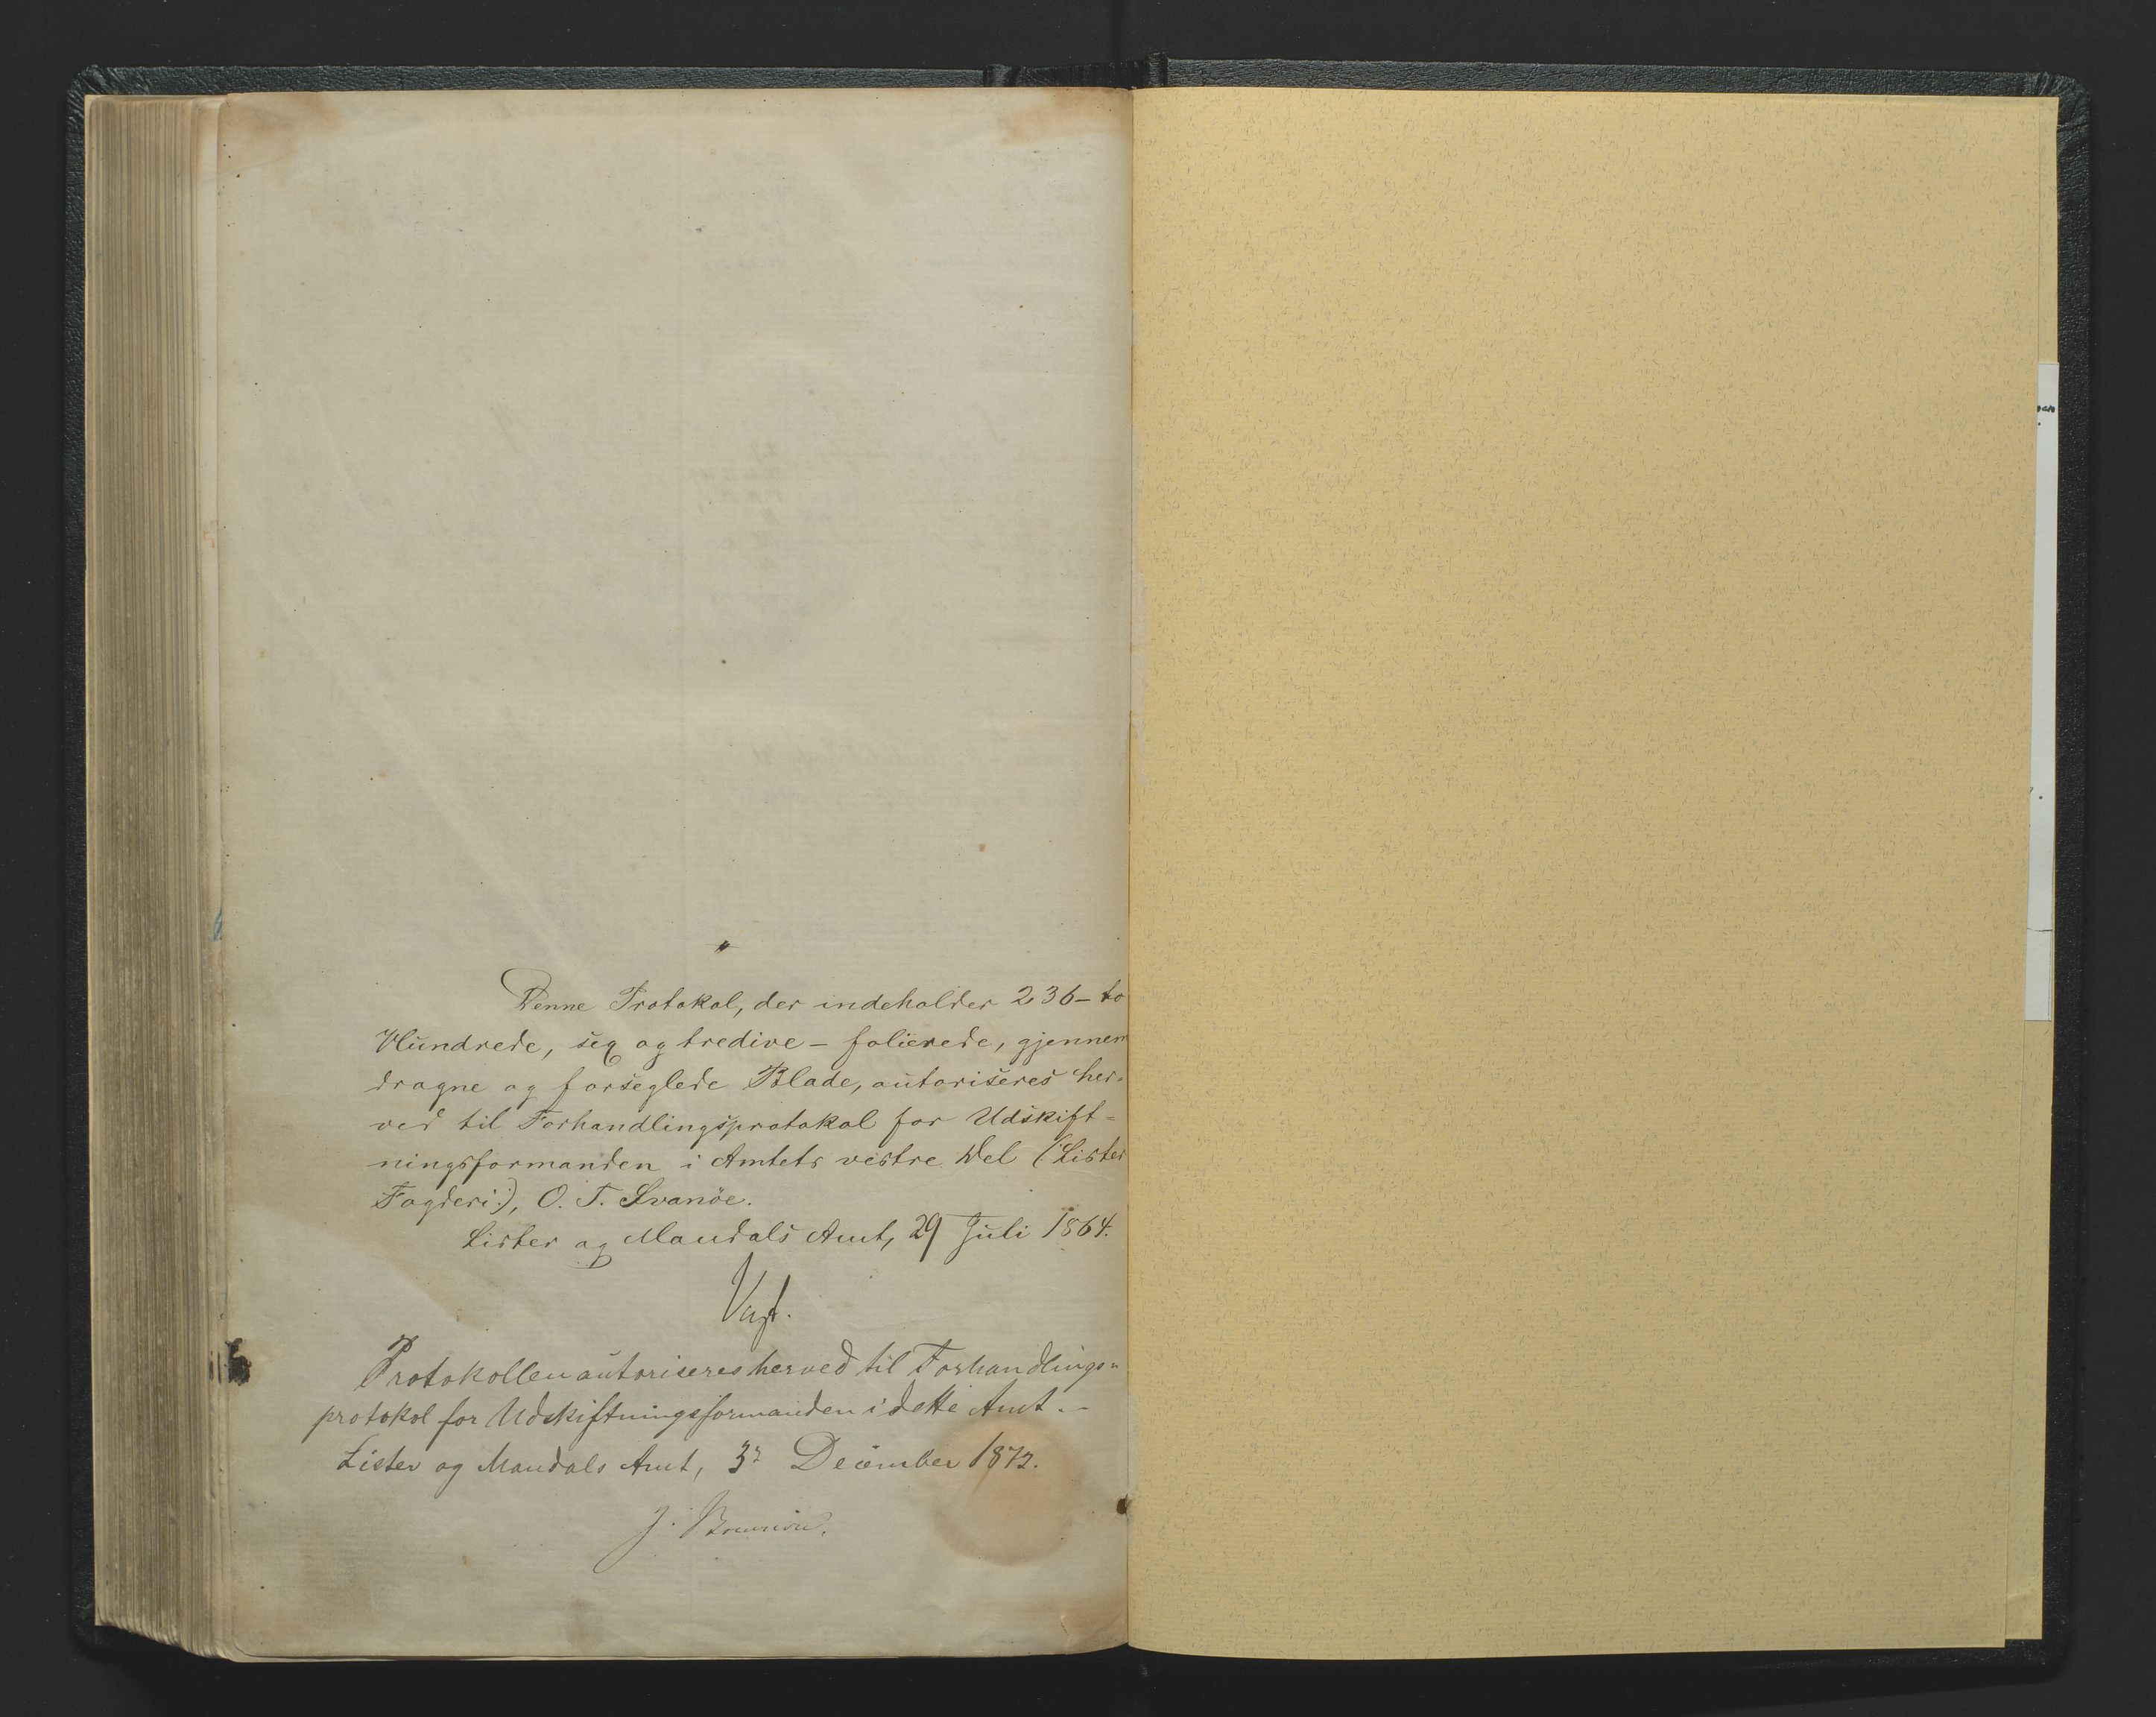 Denne Protokol, der indeholder 236 – to
Hundrede, sex og tredive – folierede, gjennem
dragne og forseglede Blade, autoriseres her-
ved til Forhandlingsprotokol for Udskift=
ningsformanden i Amtets vestre Del (:Lister
Fogderi:), O. T. Svanöe.
Lister og Mandals Amt, 29 Juli 1864.
Vogt.
Protokollen autoriseres herved til Forhandlings=
protokol for Udskiftningsformanden i dette Amt. –
Lister og Mandals Amt, 3 December 1872.
J.